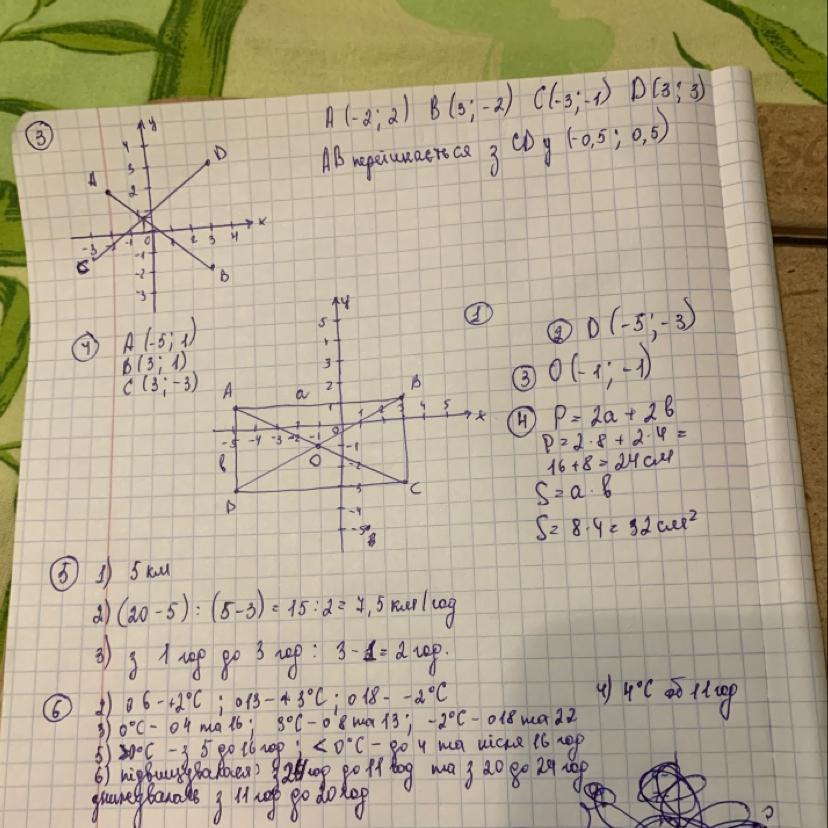 3
A (-2; 2) B (3; -2) C (-3; -1) D (3; 3)
AB перетинається з CD у (-0,5; 0,5)
y
4
3
2
1
A
D
x
-3
-1
0
1
2
3
4
-1
-2
-3
C
B
4
A (-5; 1)
B (3; 1)
C (3; -3)
y
5
4
3
2
1
A
a
B
x
-5 -4 -3 -2 -1 0 1 2 3 4 5
-1
-2
-4
-5
в
O
D
C
1
2 D (-5; -3)
3 O (-1; -1)
4 P = 2a + 2в
P = 2·8 + 2·4 =
16 + 8 = 24 см
S = a · в
S = 8·4 = 32 см²
5 1) 5 км
2) (20 - 5) : (5 - 3) = 15 : 2 = 7,5 км/год
3) з 1 год до 3 год : 3 - 1 = 2 год.
6 о 6 - +2°C ; о 13 - + 3°C ; о 18 - -2°C
4) 4°C об 11 год
3) 0°C - о 4 та 16 ; 3°C - о 8 та 13 ; -2°C - о 18 та 22
5) >0°C - з 5 до 16 год ; < 0°C - до 4 та після 16 год
6) підвищувалася: з год до 11 год та з 20 до 24 год
знижувалась з 11 год до 20 год